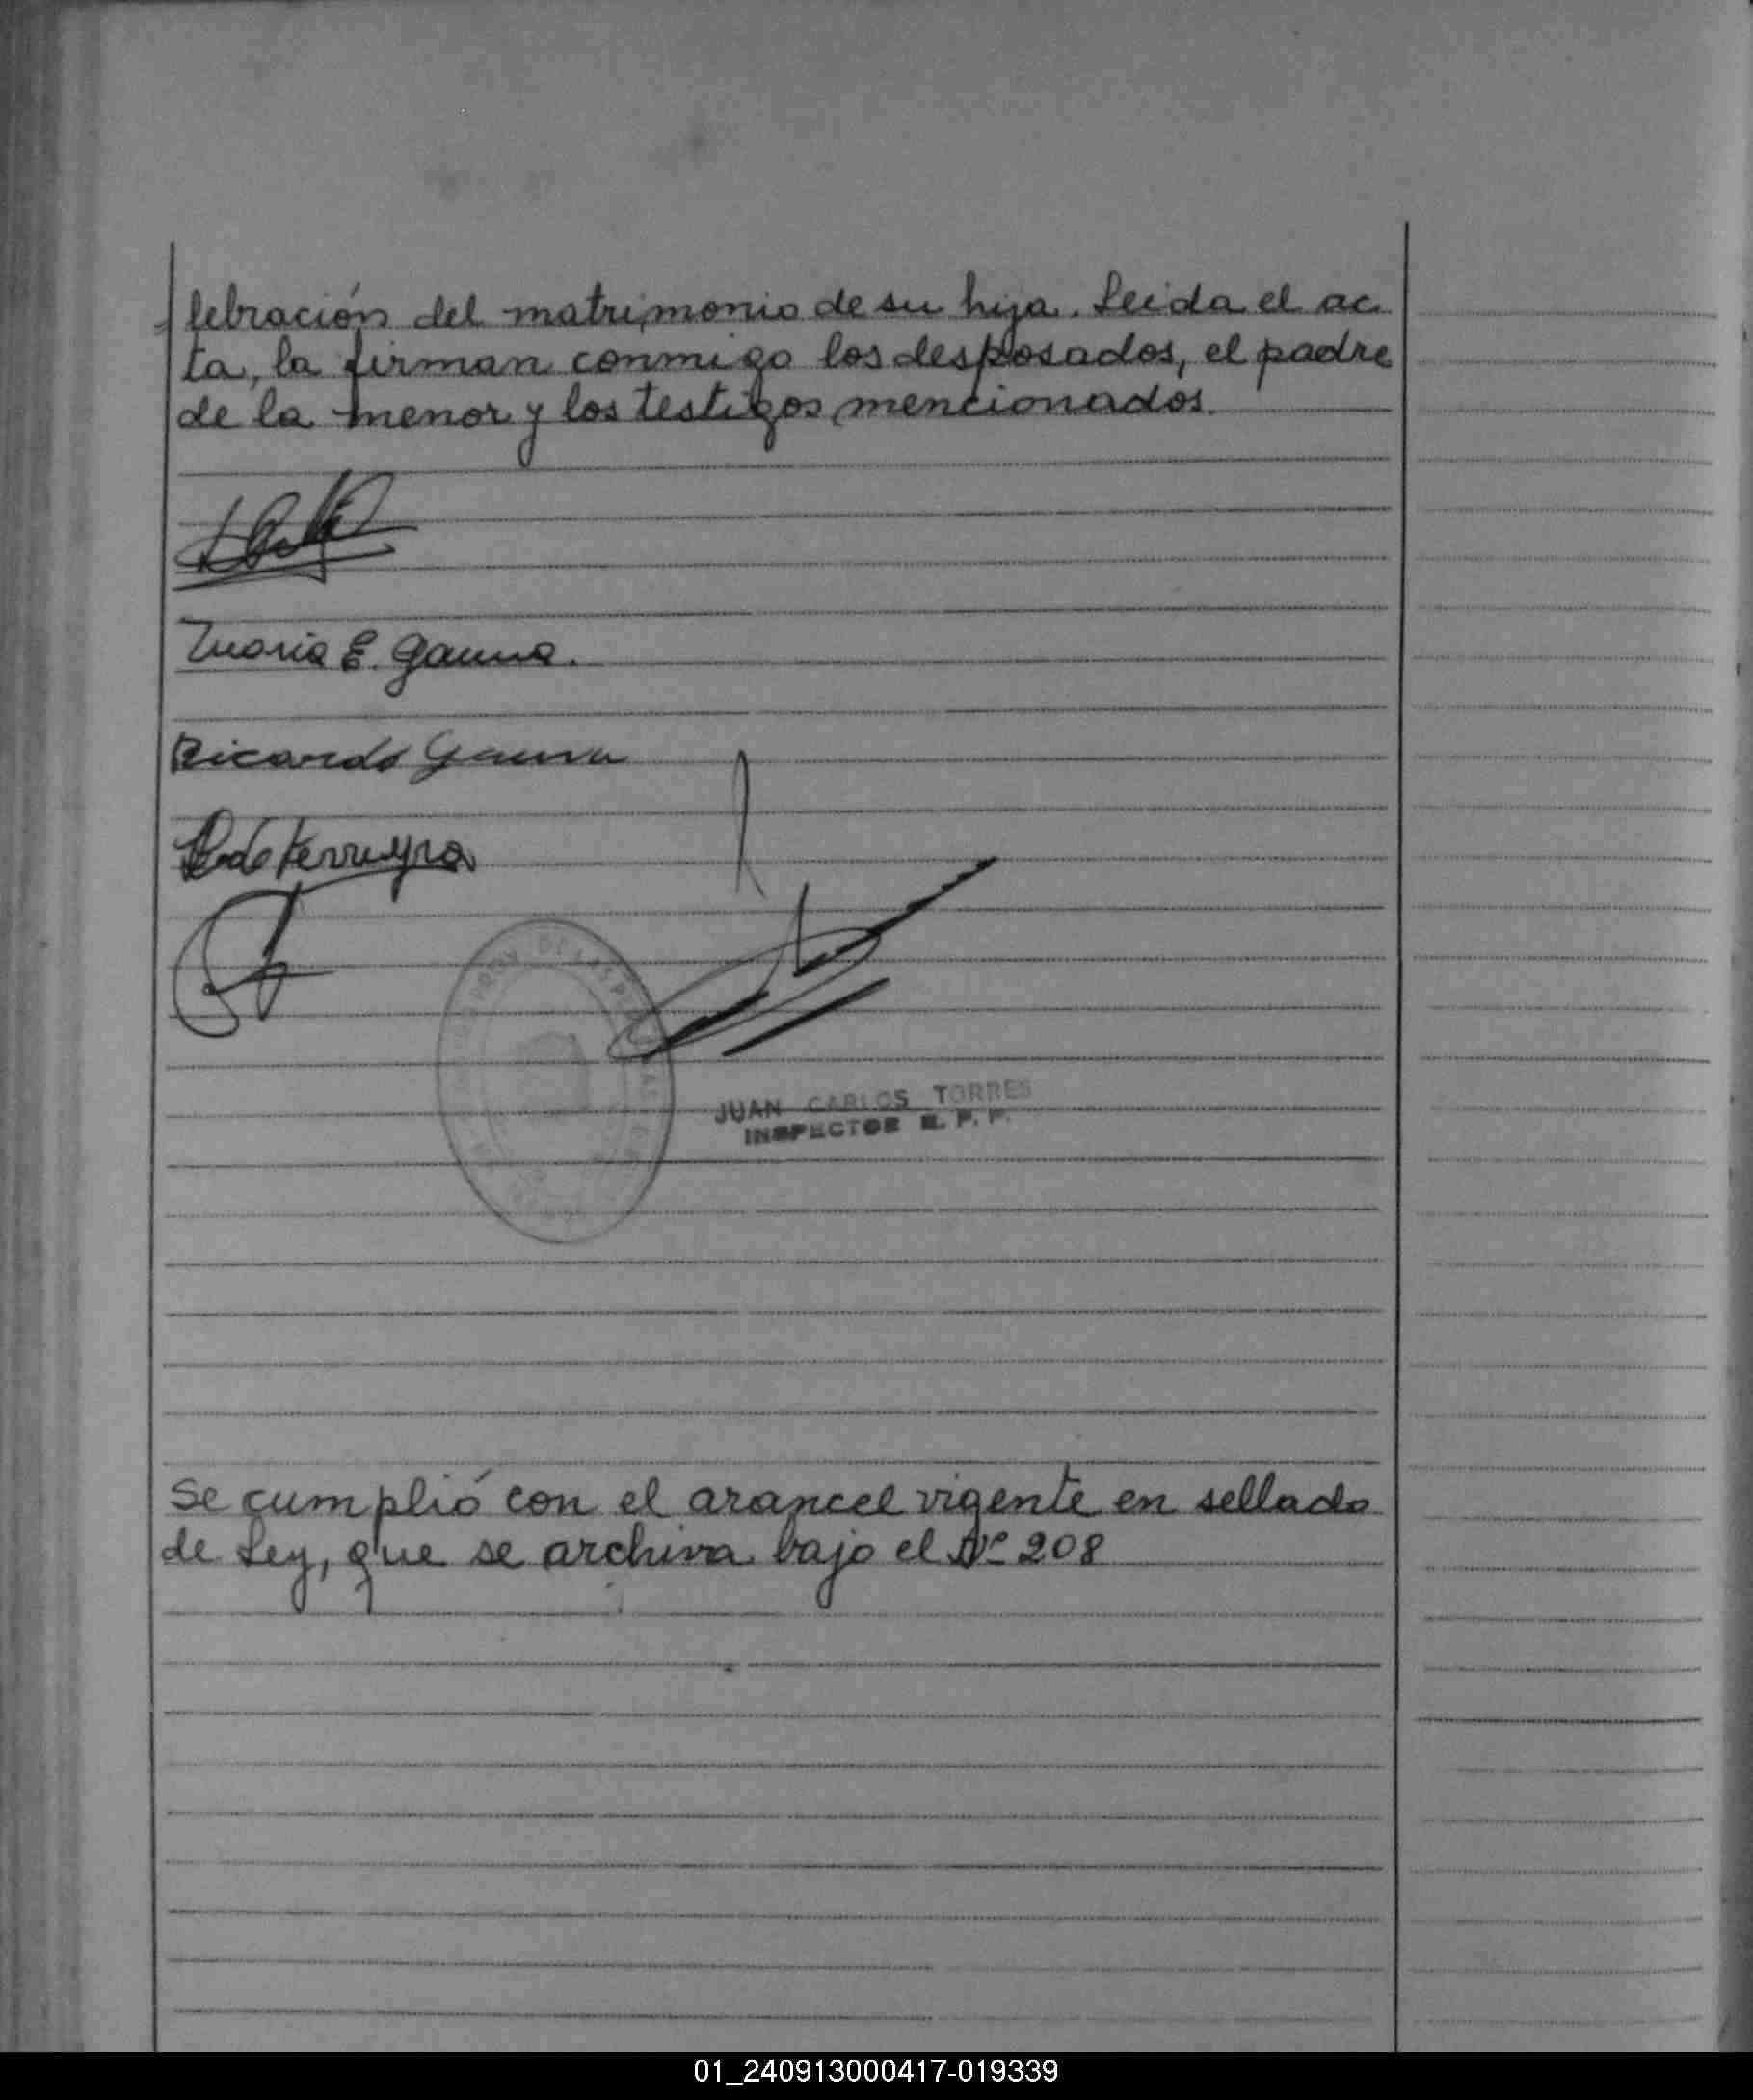 lebración del matrimonio de su hija. Leida el ac
ta, la firman conmigo los desposados, el padre
de la menor y los testigos mencionados.
Maria E. Gauna.
Ricardo Gauna
de Ferreyra
JUAN CARLOS TORRES
INSPECTOR E. P. P.
Se cumplió con el arancel vigente en sellado
de Ley, que se archiva bajo el Nº 208
01_240913000417-019339